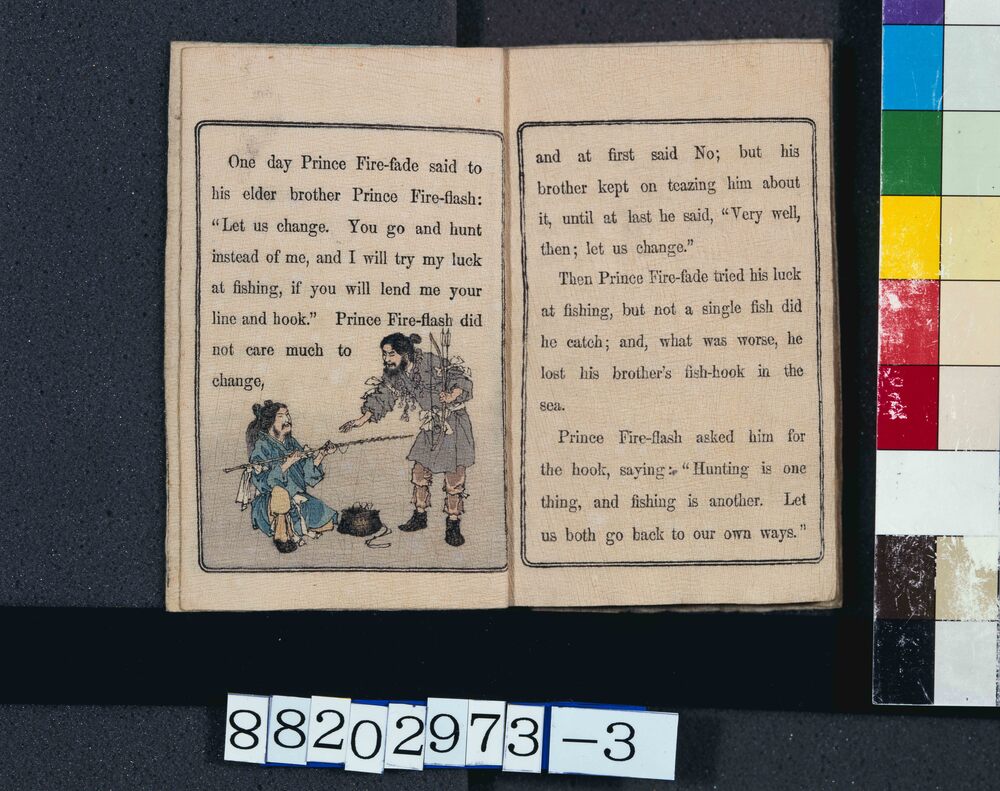 One day Prince Fire-fade said to
his elder brother Prince Fire-flash:
“Let us change. You go and hunt
instead of me, and I will try my luck
at fishing, if you will lend me your
line and hook.” Prince Fire-flash did
not care much to
change,
and at first said No; but his
brother kept on teazing him about
it, until at last he said, “Very well,
then; let us change.”
Then Prince Fire-fade tried his luck
at fishing, but not a single fish did
he catch; and, what was worse, he
lost his brother’s fish-hook in the
sea.
Prince Fire-flash asked him for
the hook, saying: “Hunting is one
thing, and fishing is another. Let
us both go back to our own ways.”
88202973-3